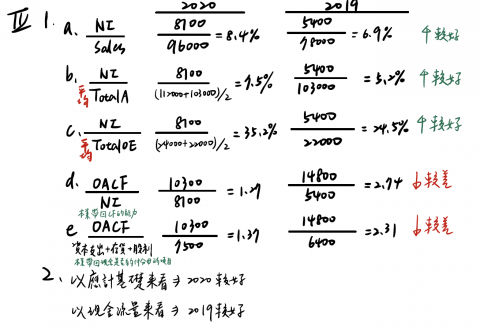 2020 2019
IV 1. a. NI / Sales 8100 / 96000 = 8.4% 5400 / 78000 = 6.9% ↑較好
b. NI / 平均 Total A 8100 / (112000+103000)/2 = 7.5% 5400 / 103000 = 5.2% ↑較好
c. NI / 平均 Total OE 8100 / (24000+22000)/2 = 35.2% 5400 / 22000 = 24.5% ↑較好
d. OACF / NI 10300 / 8100 = 1.27 14800 / 5400 = 2.74 ↓較差
本業帶回CF的能力
e. OACF / 資本支出+存貨+股利 10300 / 7500 = 1.37 14800 / 6400 = 2.31 ↓較差
本業帶回現金是否的項目
2. 以應計基礎來看 → 2020較好
以現金流量來看 → 2019較好